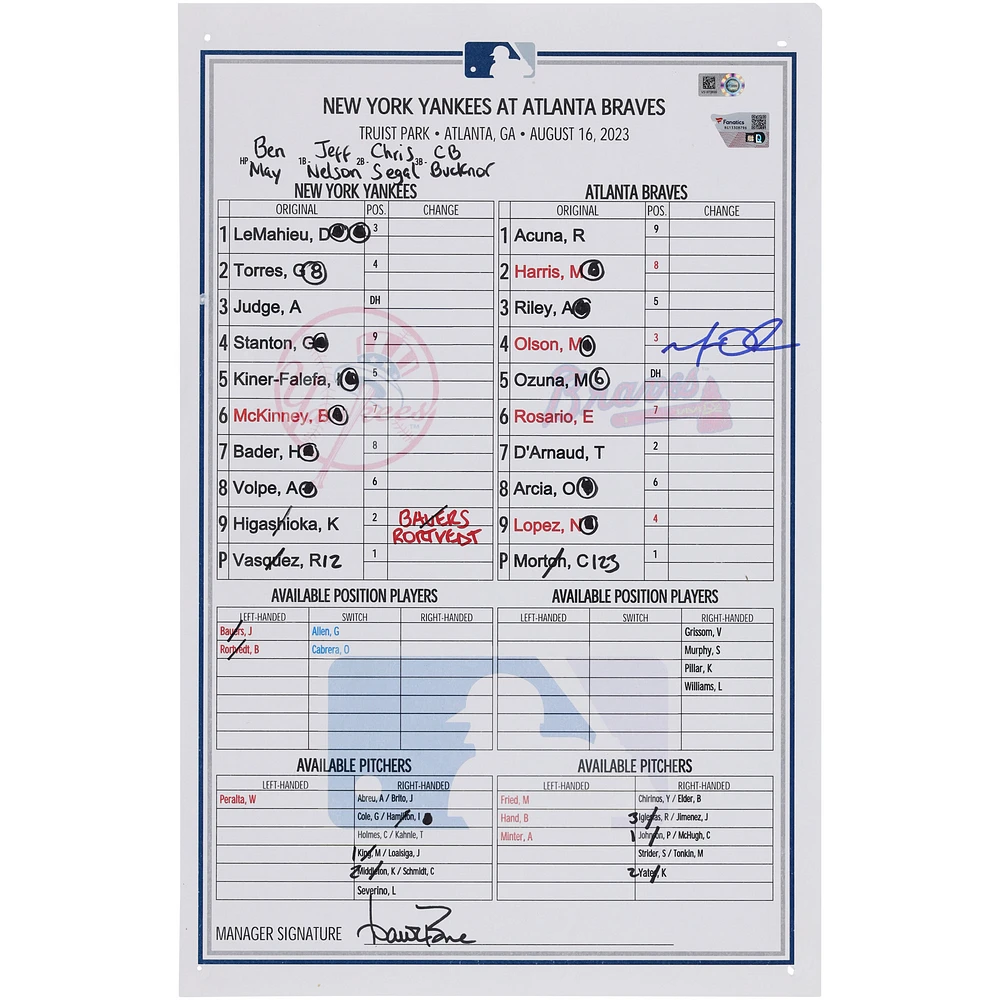 NEW YORK YANKEES AT ATLANTA BRAVES
TRUIST PARK • ATLANTA, GA • AUGUST 16, 2023
Fanatics
HP Ben May 1B Jeff Nelson 2B Chris Segal 3B CB Bucknor
NEW YORK YANKEES
ORIGINAL POS. CHANGE
1 LeMahieu, D 3
2 Torres, G 8 4
3 Judge, A DH
4 Stanton, G 9
5 Kiner-Falefa, I 5
6 McKinney, B 7
7 Bader, H 8
8 Volpe, A 6
9 Higashioka, K 2 BAUERS
RORTVEDT
P Vasquez, R 12 1
ATLANTA BRAVES
ORIGINAL POS. CHANGE
1 Acuna, R 9
2 Harris, M 8
3 Riley, A 5
4 Olson, M 3
5 Ozuna, M 6 DH
6 Rosario, E 7
7 D'Arnaud, T 2
8 Arcia, O 6
9 Lopez, N 4
P Morton, C 123 1
Yankees
Braves
AVAILABLE POSITION PLAYERS
LEFT-HANDED SWITCH RIGHT-HANDED
Bauers, J Allen, G
Rortvedt, B Cabrera, O
AVAILABLE POSITION PLAYERS
LEFT-HANDED SWITCH RIGHT-HANDED
Grissom, V
Murphy, S
Pillar, K
Williams, L
AVAILABLE PITCHERS
LEFT-HANDED RIGHT-HANDED
Peralta, W Abreu, A / Brito, J
Cole, G / Hamilton, I
Holmes, C / Kahnle, T
1 King, M / Loaisiga, J
2 Middleton, K / Schmidt, C
Severino, L
AVAILABLE PITCHERS
LEFT-HANDED RIGHT-HANDED
Fried, M Chirinos, Y / Elder, B
Hand, B 3 Iglesias, R / Jimenez, J
Minter, A 1 Johnson, P / McHugh, C
Strider, S / Tonkin, M
2 Yates, K
MANAGER SIGNATURE